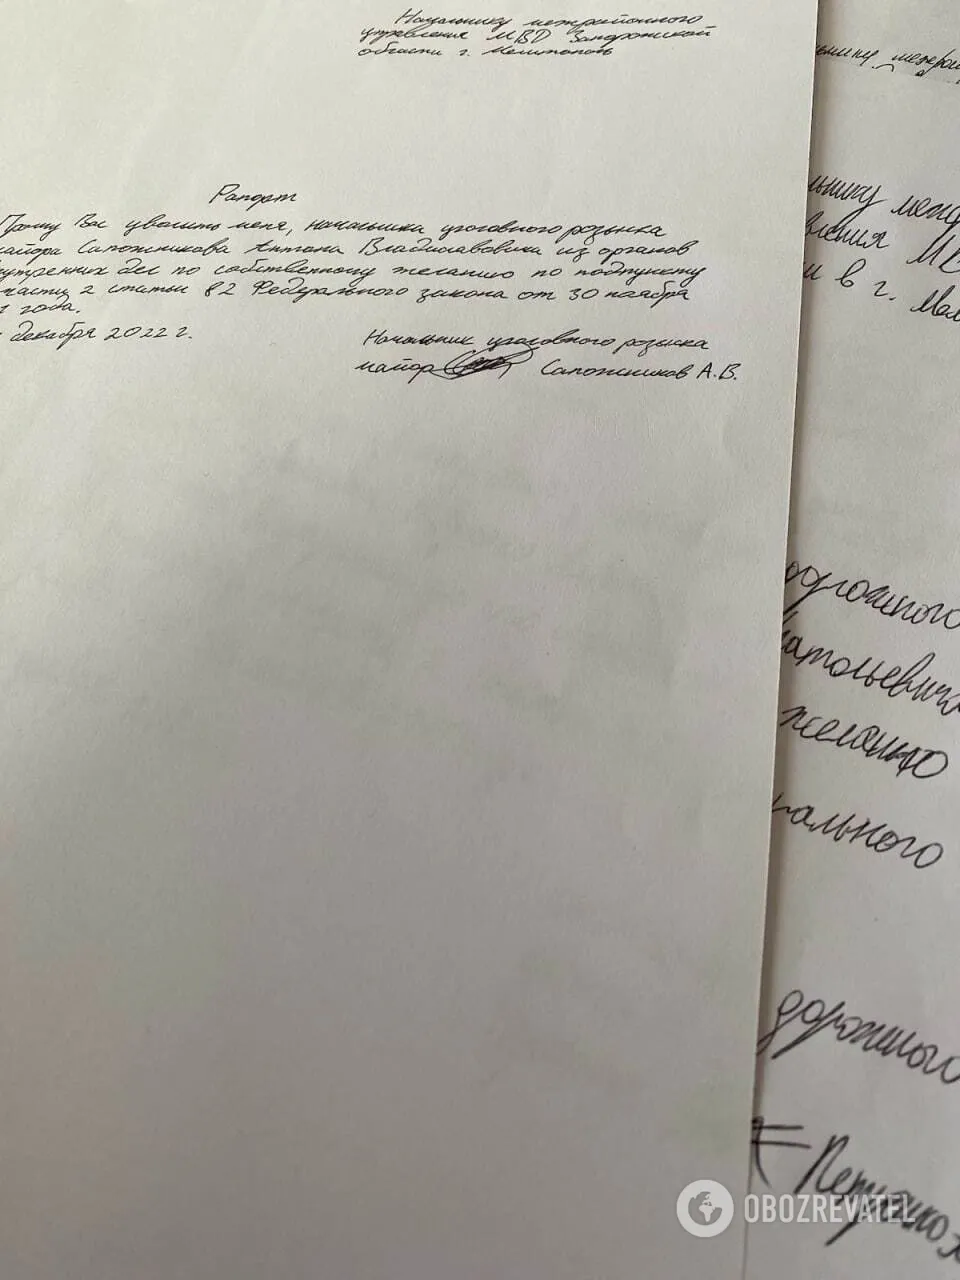 Начальнику межрайонного
управления МВД Запорожской
области г. Мелитополь
Рапорт
Прошу Вас уволить меня, начальника уголовного розыска
майора Сапожникова Антона Владиславовича из органов
нутренних дел по собственному желанию по подпункту
части 2 статьи 82 Федерального закона от 30 ноября
1 года.
декабря 2022 г.
Начальник уголовного розыска
майор Сапожников А.В.
льнику
вления МВ
и в г. Мел
дорожного
натольевича
желанию
рального
дорожного
OBOZREVATEL